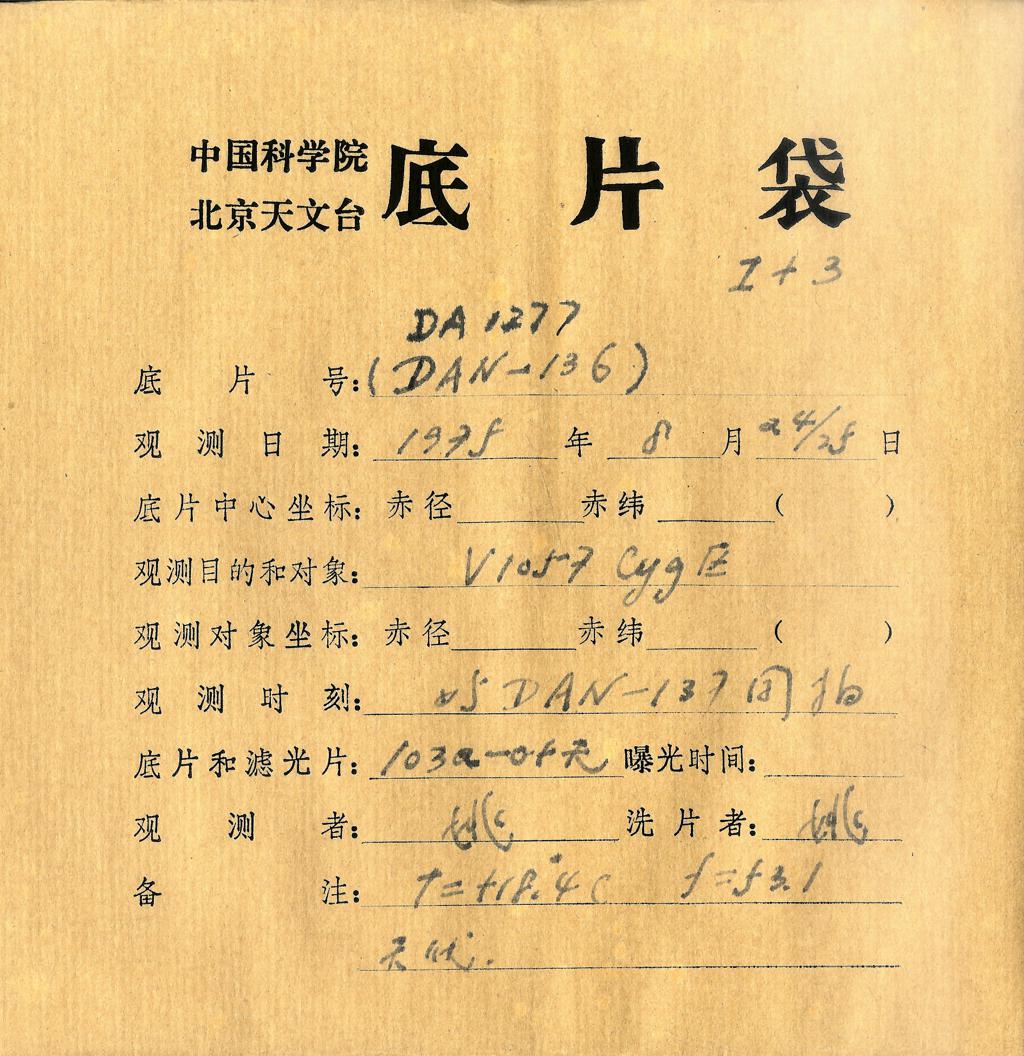 中国科学院
北京天文台
底片袋
I + 3
DA 1277
底片号:(DAN-136)
观测日期:1975年8月24/25日
底片中心坐标:赤径 赤纬 ( )
观测目的和对象:V1057 Cyg 区
观测对象坐标:赤径 赤纬 ( )
观测时刻:与DAN-137同拍
底片和滤光片:103a-0 曝光时间:
观测者:姚 洗片者:姚
备注:T=+18.4°C f=53.1